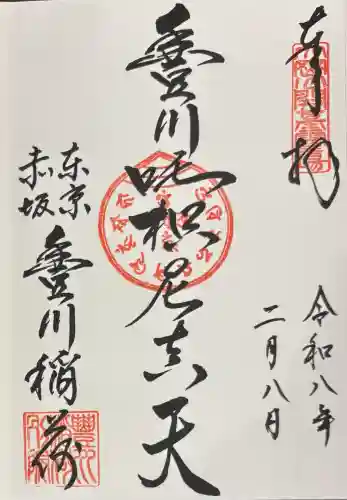 奉拝
令和八年
二月八日
豊川吒枳尼真天
東京
赤坂
豊川稲荷